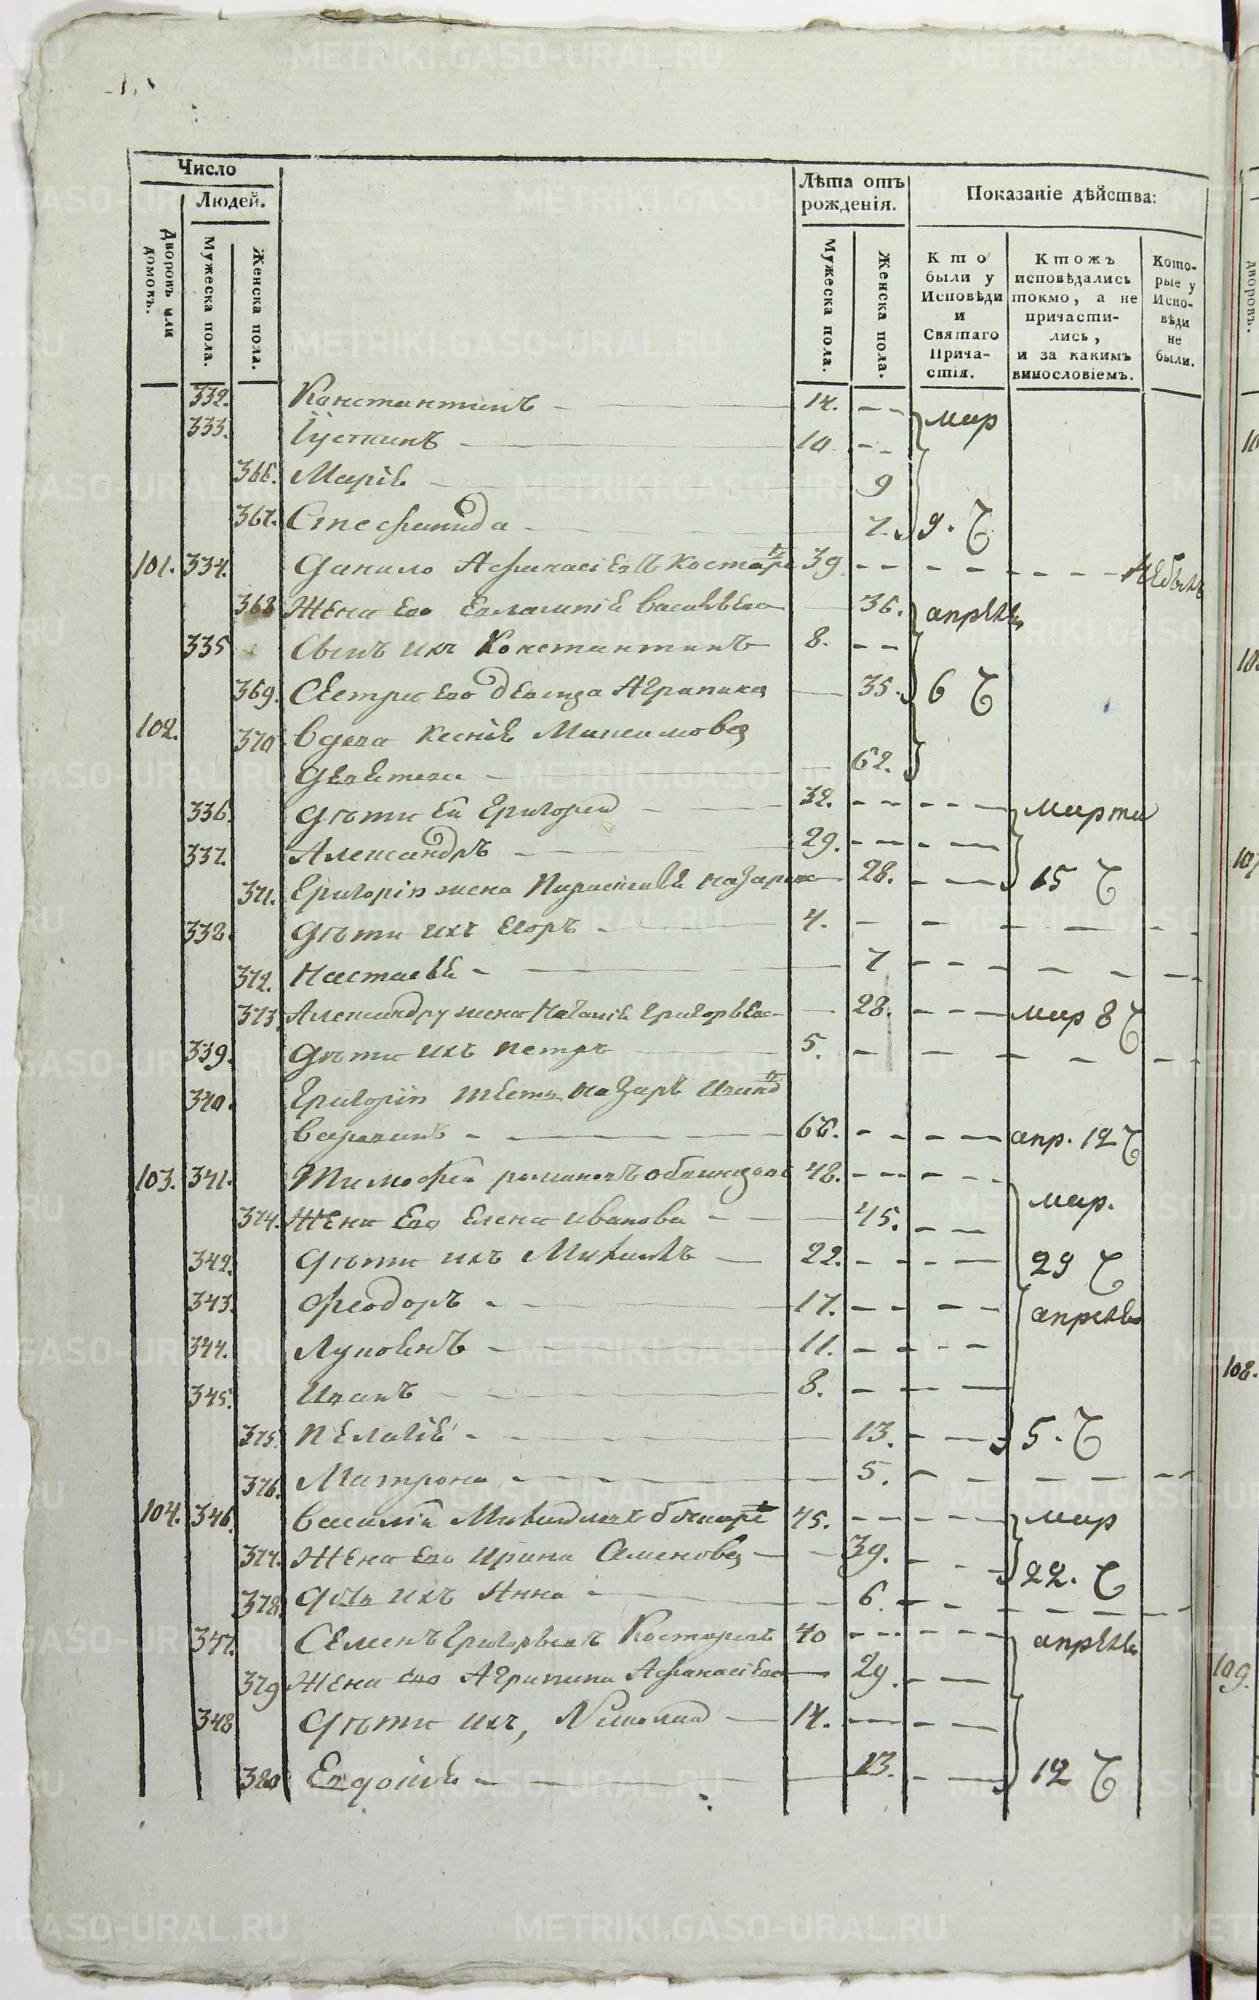 Число
Людей.
Дворовъ или домовъ.
Мужеска пола.
Женска пола.
Лѣта отъ рожденія.
Мужеска пола.
Женска пола.
Показаніе дѣйства:
Кто были у Исповѣди и Святаго Причастія.
Ктожъ исповѣдались токмо, а не причастились, и за какимъ винословіемъ.
Которые у Исповѣди не были.
332. Константинъ 14. мар
333. Іустинъ 10
366. Марія 9
367. Стефанида 7. 9. Ч
101. 334. Данило Афанасіевъ 39 небылъ
368 Жена его Евлампія Васильева 36. апрѣль
335 Сынъ ихъ Константинъ 8.
369. Сестра его девица Агрипина 35. 6 Ч
102. 370 Вдова Ксенія Максимова
62.
336. Дѣти ей Григорей 32. марта
337. Александръ 29.
371. Григорія жена Параскева Назарова 28. 15 Ч
338. Дѣти ихъ Егоръ 4.
372. Настасья 7
373 Александру жена Наталія Григорьева 28. мар 8 Ч
339. Дѣти ихъ Петръ 5.
340. Григорія тесть Назаръ
66. апр. 12 Ч
103. 341. Тимофей Романовъ 48. мар.
374. Жена его Елена Иванова 45.
342. Дѣти ихъ Михаилъ 22. 29 Ч
343. Феодоръ 17. апрѣль
344. Лупоянъ 11.
345. Иванъ 8.
375. Пелагія 13. 5. Ч
376. Матрона 5.
104. 346. Василій Михайловъ 45. мар
377. Жена его Ирина Семенова 39. 22. Ч
378. Дочь ихъ Анна 6.
347. Семенъ Григорьевъ Костаревъ 40 апрѣль
379 Жена его Агрипина Афанасіева 29.
348 Дѣти ихъ, 14.
380 Евдокія 13. 12 Ч
METRIKI.GASO-URAL.RU